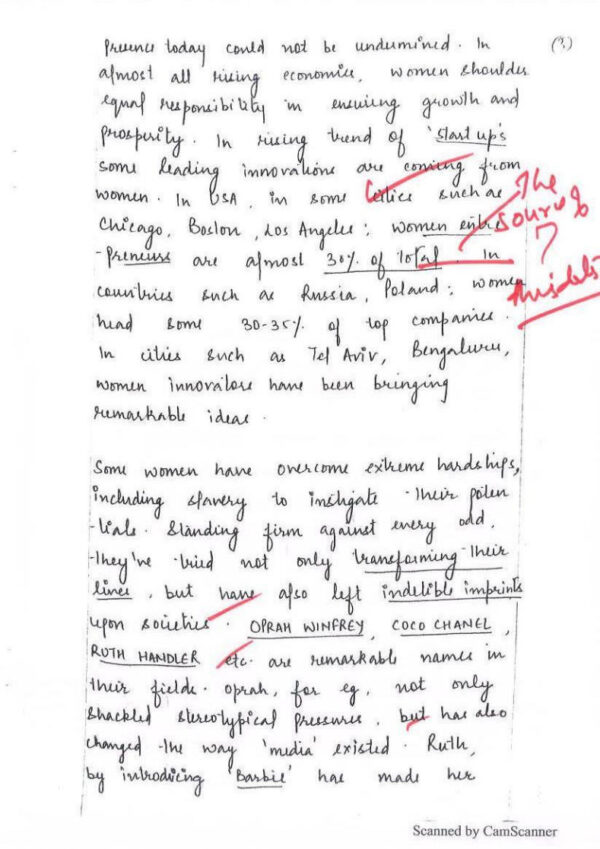 presence today could not be undermined. In (3)
almost all rising economies, women shoulder
equal responsibility in ensuring growth and
prosperity. In rising trend of 'start up's
some leading innovations are coming from
women. In USA, in some cities such as
Chicago, Boston, Los Angeles; women entre
-preneurs are almost 30% of total. In
The
source of
this data
?
countries such as Russia, Poland; women
head some 30-35% of top companies.
In cities such as Tel Aviv, Bengaluru,
women innovators have been bringing
remarkable ideas.
Some women have overcome extreme hardships,
including slavery to instigate their poten
-tials. Standing firm against every odd,
they've tried not only transforming their
lives, but have also left indelible imprints
upon societies. OPRAH WINFREY, COCO CHANEL,
RUTH HANDLER etc. are remarkable names in
their fields. Oprah, for eg, not only
shackled stereotypical pressures, but has also
changed the way 'media' existed. Ruth,
by introducing 'Barbie' has made her
Scanned by CamScanner